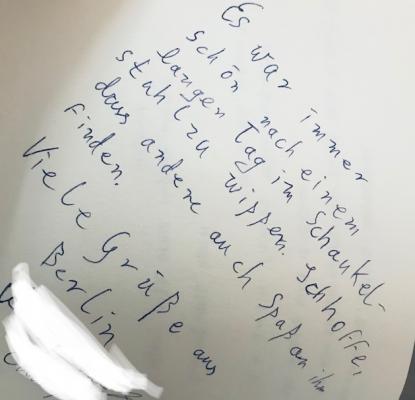 Es war immer
schön nach einem
langen Tag im Schaukel-
stuhl zu wippen. Ich hoffe,
dass andere auch Spaß an ihm
finden.
Viele Grüße aus
Berlin